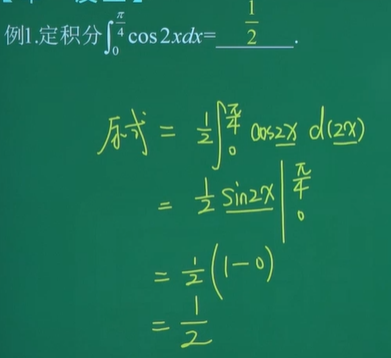 例1.定积分∫₀^{π/4} cos2xdx= 1/2 .
原式 = 1/2 ∫₀^{π/4} cos2x d(2x)
= 1/2 sin2x |₀^{π/4}
= 1/2 (1-0)
= 1/2